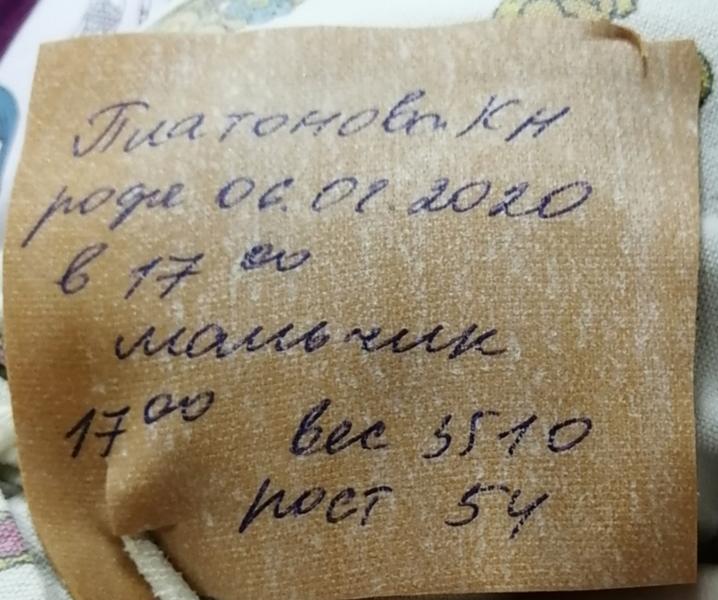 Платонова КН
роды 06.01.2020
в 17 00
мальчик
17 00 вес 3510
рост 54